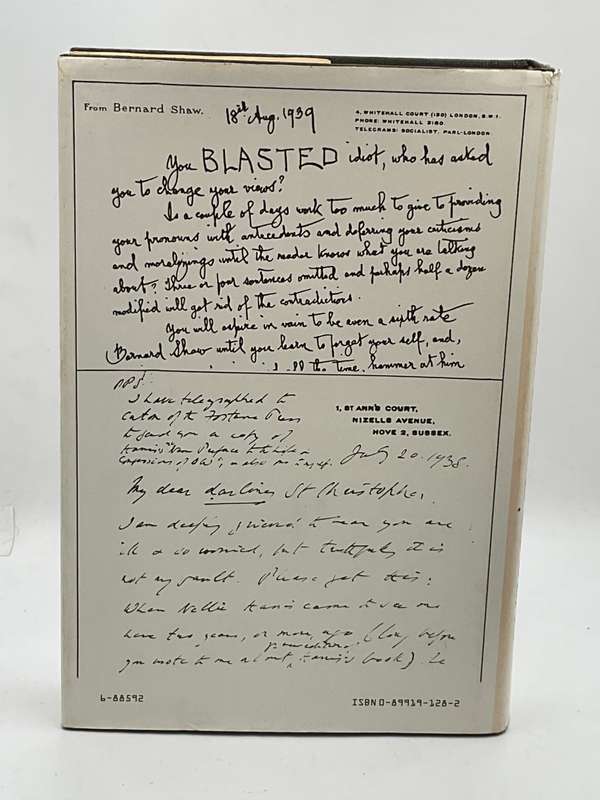 From Bernard Shaw.
18th Aug. 1939
4, WHITEHALL COURT (130) LONDON, S.W.1.
PHONE: WHITEHALL 3160.
TELEGRAMS: SOCIALIST, PARL-LONDON
You BLASTED idiot, who has asked
you to change your views?
Is a couple of days work too much to give to providing
your pronouns with antecedents and deferring your criticisms
and moralizings until the reader knows what you are talking
about? Three or four sentences omitted and perhaps half a dozen
modified will get rid of the contradictions.
You will aspire in vain to be even a sixth rate
Bernard Shaw until you learn to forget your self, and,
all the time, hammer at him
PPS!
I have telegraphed to
Caton of the Fortune Press
to send you a copy of
Harris's New Preface to the Life &
Confessions of O.W.,
1, ST ANN'S COURT,
NIZELLS AVENUE,
HOVE 2, SUSSEX.
July 20. 1938.
My dear darling St Christopher,
I am deeply grieved to hear you are
ill & so worried, but truthfully it is
not my fault. Please get this:
When Nellie Harris came to see me
here two years, or more, ago (long before
you wrote to me about Harris's book)
6-88592
ISBN 0-89919-128-2